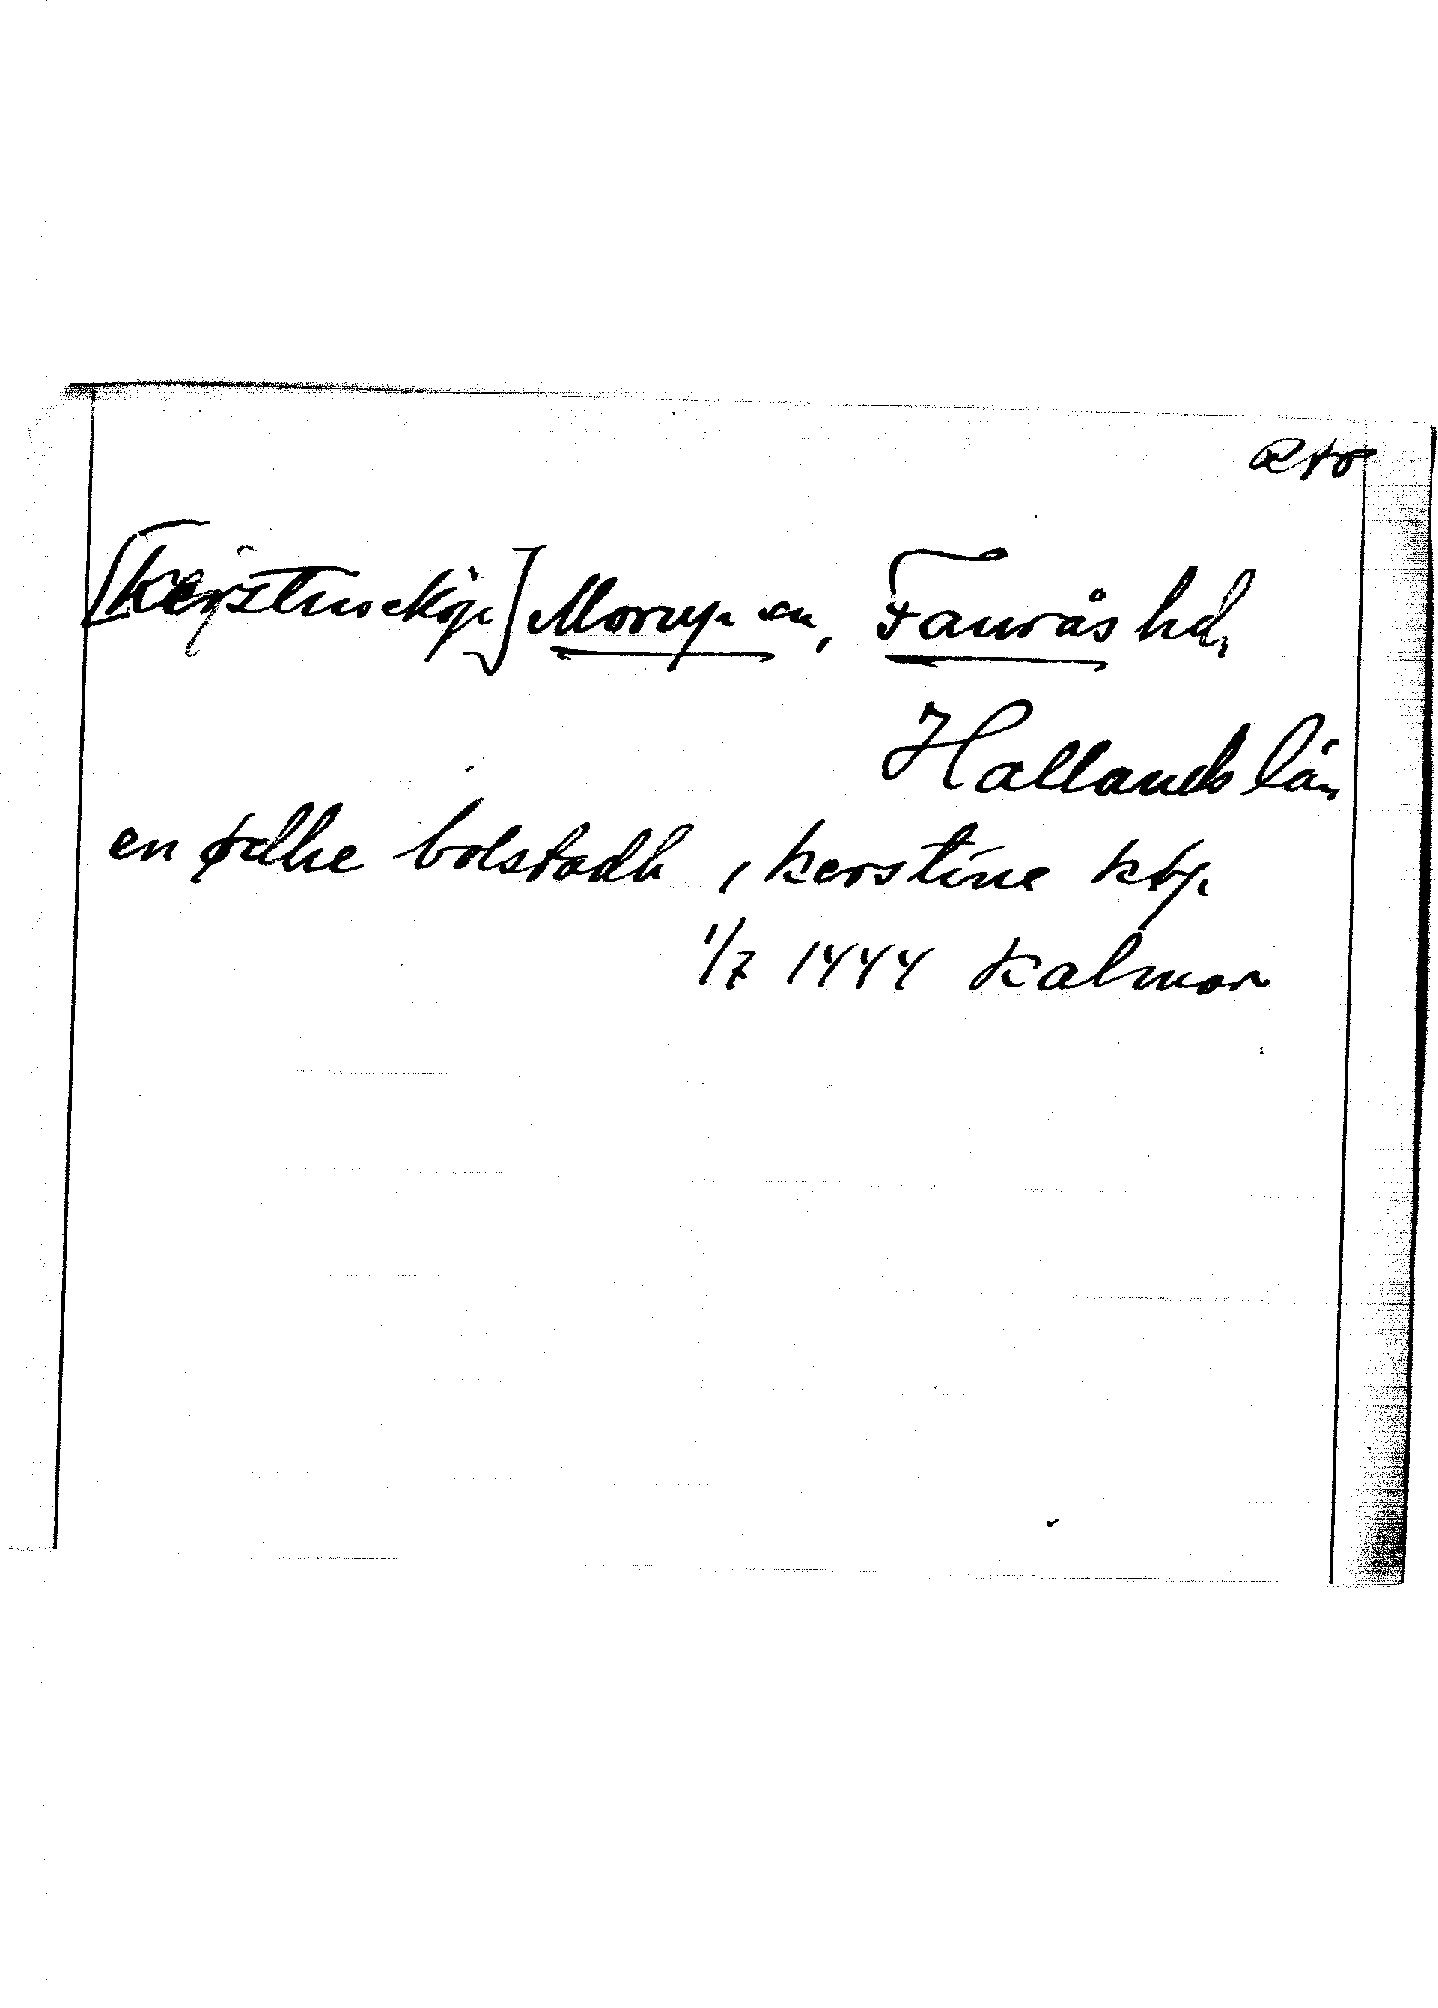 RAO
[Kerstinekøp] Morup sn, Faurås hd,
Hallands län
en ødhe bolstadh, kerstine køp
1/7 1444 Kalmar